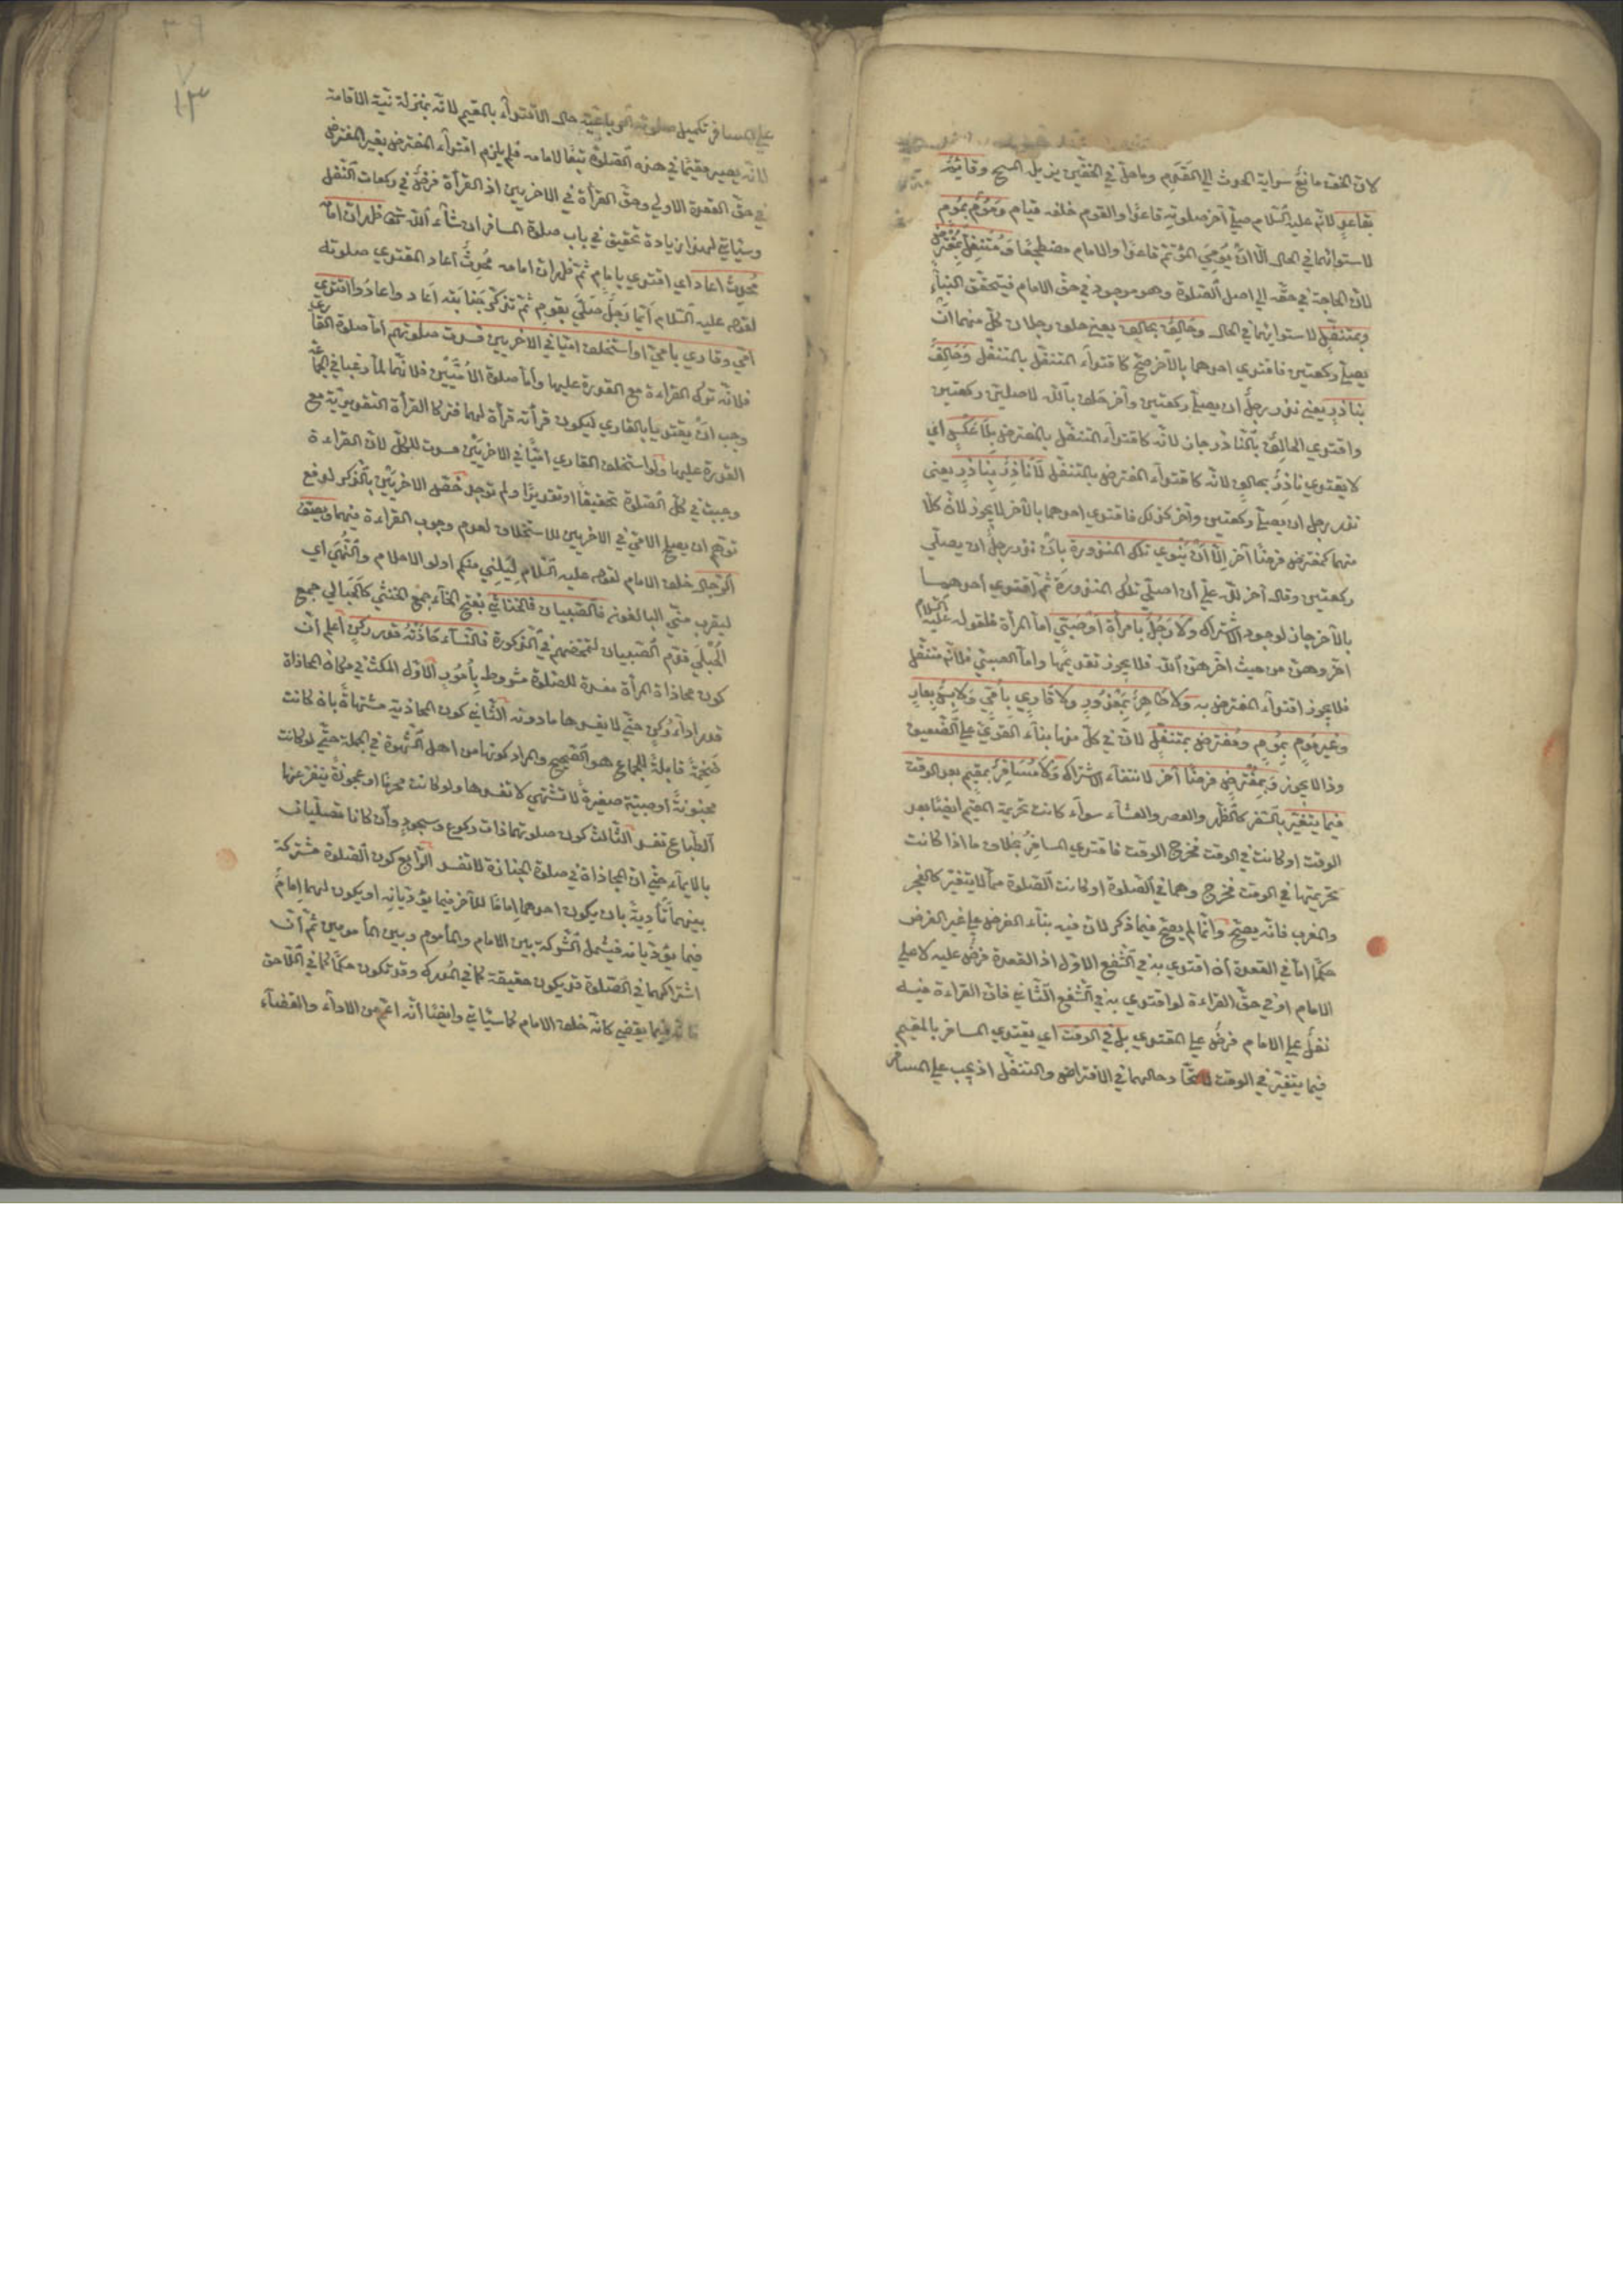 لان الخف مانع سراية الحدث الي القدم وما حل في الخفين يزيله المسح وقائم
بقاعد لانه عليه السلام صلي آخر صلوته قاعدا والقوم خلفه قيام ومؤم بموم
لاستوائهما في الحال الا ان يومي المؤتم قاعدا والامام مضطجعا ومتنفل بمفترض
لان الحاجة في حقه الي اصل الصلوة وهو موجود في حق الامام فيتحقق البناء
وبمتنفل لاستوائهما في الحال وحالف بحالف يعني حلف رجلان كل منهما ان
يصلي ركعتين فاقتدي احدهما بالآخر صح كاقتداء المتنفل بالمتنفل وحالف
بناذر يعني نذر رجل ان يصلي ركعتين وآخر حلف بالله لاصلين ركعتين
واقتدي الحالف بالناذر جاز لانه كاقتداء المتنفل بالمفترض بلا عكس اي
لا يقتدي ناذر بحالف لانه كاقتداء المفترض بالمتنفل لا ناذر بناذر يعني
نذر رجل ان يصلي ركعتين وآخر كذلك فاقتدي احدهما بالآخر لا يجوز لان كلا
منهما كمفترض فرضا آخر الا ان ينوي تلك المنذورة بان نذر رجل ان يصلي
ركعتين وقال آخر لله علي ان اصلي تلك المنذورة ثم اقتدي احدهما
بالآخر جاز لوجود الاشتراك ولا رجل بامرأة او صبي اما المرأة فلقوله عليه السلام
اخروهن من حيث اخرهن الله فلا يجوز تقديمها واما الصبي فلانه متنفل
فلا يجوز اقتداء المفترض به ولا طاهر بمعذور ولا قاري بامي ولابس بعار
وغير موم بموم ومفترض بمتنفل لان في كل منها بناء القوي علي الضعيف
وذا لا يجوز وبمفترض فرضا آخر لانتفاء الاشتراك ولا مسافر بمقيم بعد الوقت
فيما يتغير بالسفر كالظهر والعصر والعشاء سواء كانت تحريمة المقيم ايضا بعد
الوقت او كانت في الوقت فخرج الوقت فاقتدي المسافر بخلاف ما اذا كانت
تحريمتها في الوقت فخرج وهما في الصلوة او كانت الصلوة مما لا يتغير كالفجر
والمغرب فانه يصح وانما لم يصح فيما ذكر لان فيه بناء الفرض علي غير الفرض
حكما اما في القعدة ان اقتدي به في الشفع الاول اذ القعدة فرض عليه لا علي
الامام او في حق القراءة لو اقتدي به في الشفع الثاني فان القراءة فيه
نفل علي الامام فرض علي المقتدي بل في الوقت اي يقتدي المسافر بالمقيم
فيما يتغير في الوقت حالهما في الافتراض والتنفل اذ يجب علي المسافر
١٣
علي المسافر تكميل صلوته الرباعية حال الاقتداء بالمقيم لانه بمنزلة نية الاقامة
لانه يصير مقيما في هذه الصلوة تبعا لامامه فلم يلزم اقتداء المفترض بغير المفترض
في حق القعدة الاولي وحق القرأة في الاخريين اذ القرأة فرض في ركعات النفل
وسيأتي لهذا زيادة تحقيق في باب صلوة المسافر ان شاء الله تعالي ظهر ان امامه
محدث اعاد اي اقتدي بامام ثم ظهر ان امامه محدث اعاد المقتدي صلوته
لقوله عليه السلام ايما رجل صلي بقوم ثم تذكر جنابته اعاد واعادوا اقتدي
امي وقاري بامي او استخلف اميا في الاخريين فسدت صلوتهم اما صلوة القاري
فلانه ترك القراءة مع القدرة عليها واما صلوة الاميين فلانهما لما رغبا في الجماعة
وجب ان يقتديا بالقاري ليكون قرأته قرأة لهما فتركا القرأة التقديرية مع
القدرة عليها ولو استخلف القاري اميا في الاخريين فسدت للكل لان القراءة
وجبت في كل الصلوة تحقيقا او تقديرا ولم توجد خص الاخريين بالذكر لدفع
توهم ان يصلح الامي في الاخريين للاستخلاف لعدم وجوب القراءة فيهما ويصف
الرجال خلف الامام لقوله عليه السلام ليلني منكم اولو الاحلام والنهي اي
ليقرب مني البالغون فالصبيان فالخناثي بفتح الخاء جمع الخنثي كالحبالي جمع
الحبلي قدم الصبيان لتمحضهم في الذكورة فالنساء حاذته قدر ركن اعلم ان
كون محاذاة المرأة مفسدة للصلوة مشروط بامور الاول المكث في مكان المحاذاة
قدر اداء ركن حتي لا يفسدها ما دونه الثاني كون المحاذية مشتهاة بان كانت
ضخمة قابلة للجماع هو الصحيح والمراد كونها من اهل الشهوة في الجملة حتي لو كانت
مجنونة او صبية صغيرة لا تشتهي لا تفسدها ولو كانت محرما او عجوزة ينفر عنها
الطباع تفسد الثالث كون صلوتهما ذات ركوع وسجود وان كانا مصليان
بالايماء حتي ان المحاذاة في صلوة الجنازة لا تفسد الرابع كون الصلوة مشتركة
بينهما تأدية بان يكون احدهما اماما للآخر فيما يؤديانه او يكون لهما امام
فيما يؤديانه فيشمل الشركة بين الامام والمأموم وبين المأمومين ثم ان
اشتراكهما في الصلوة قد يكون حقيقة كما في المدرك وقد تكون حكما كما في اللاحق
فانه فيما يقضي كانه خلف الامام كما سيأتي وايضا انه اعم من الاداء والقضاء